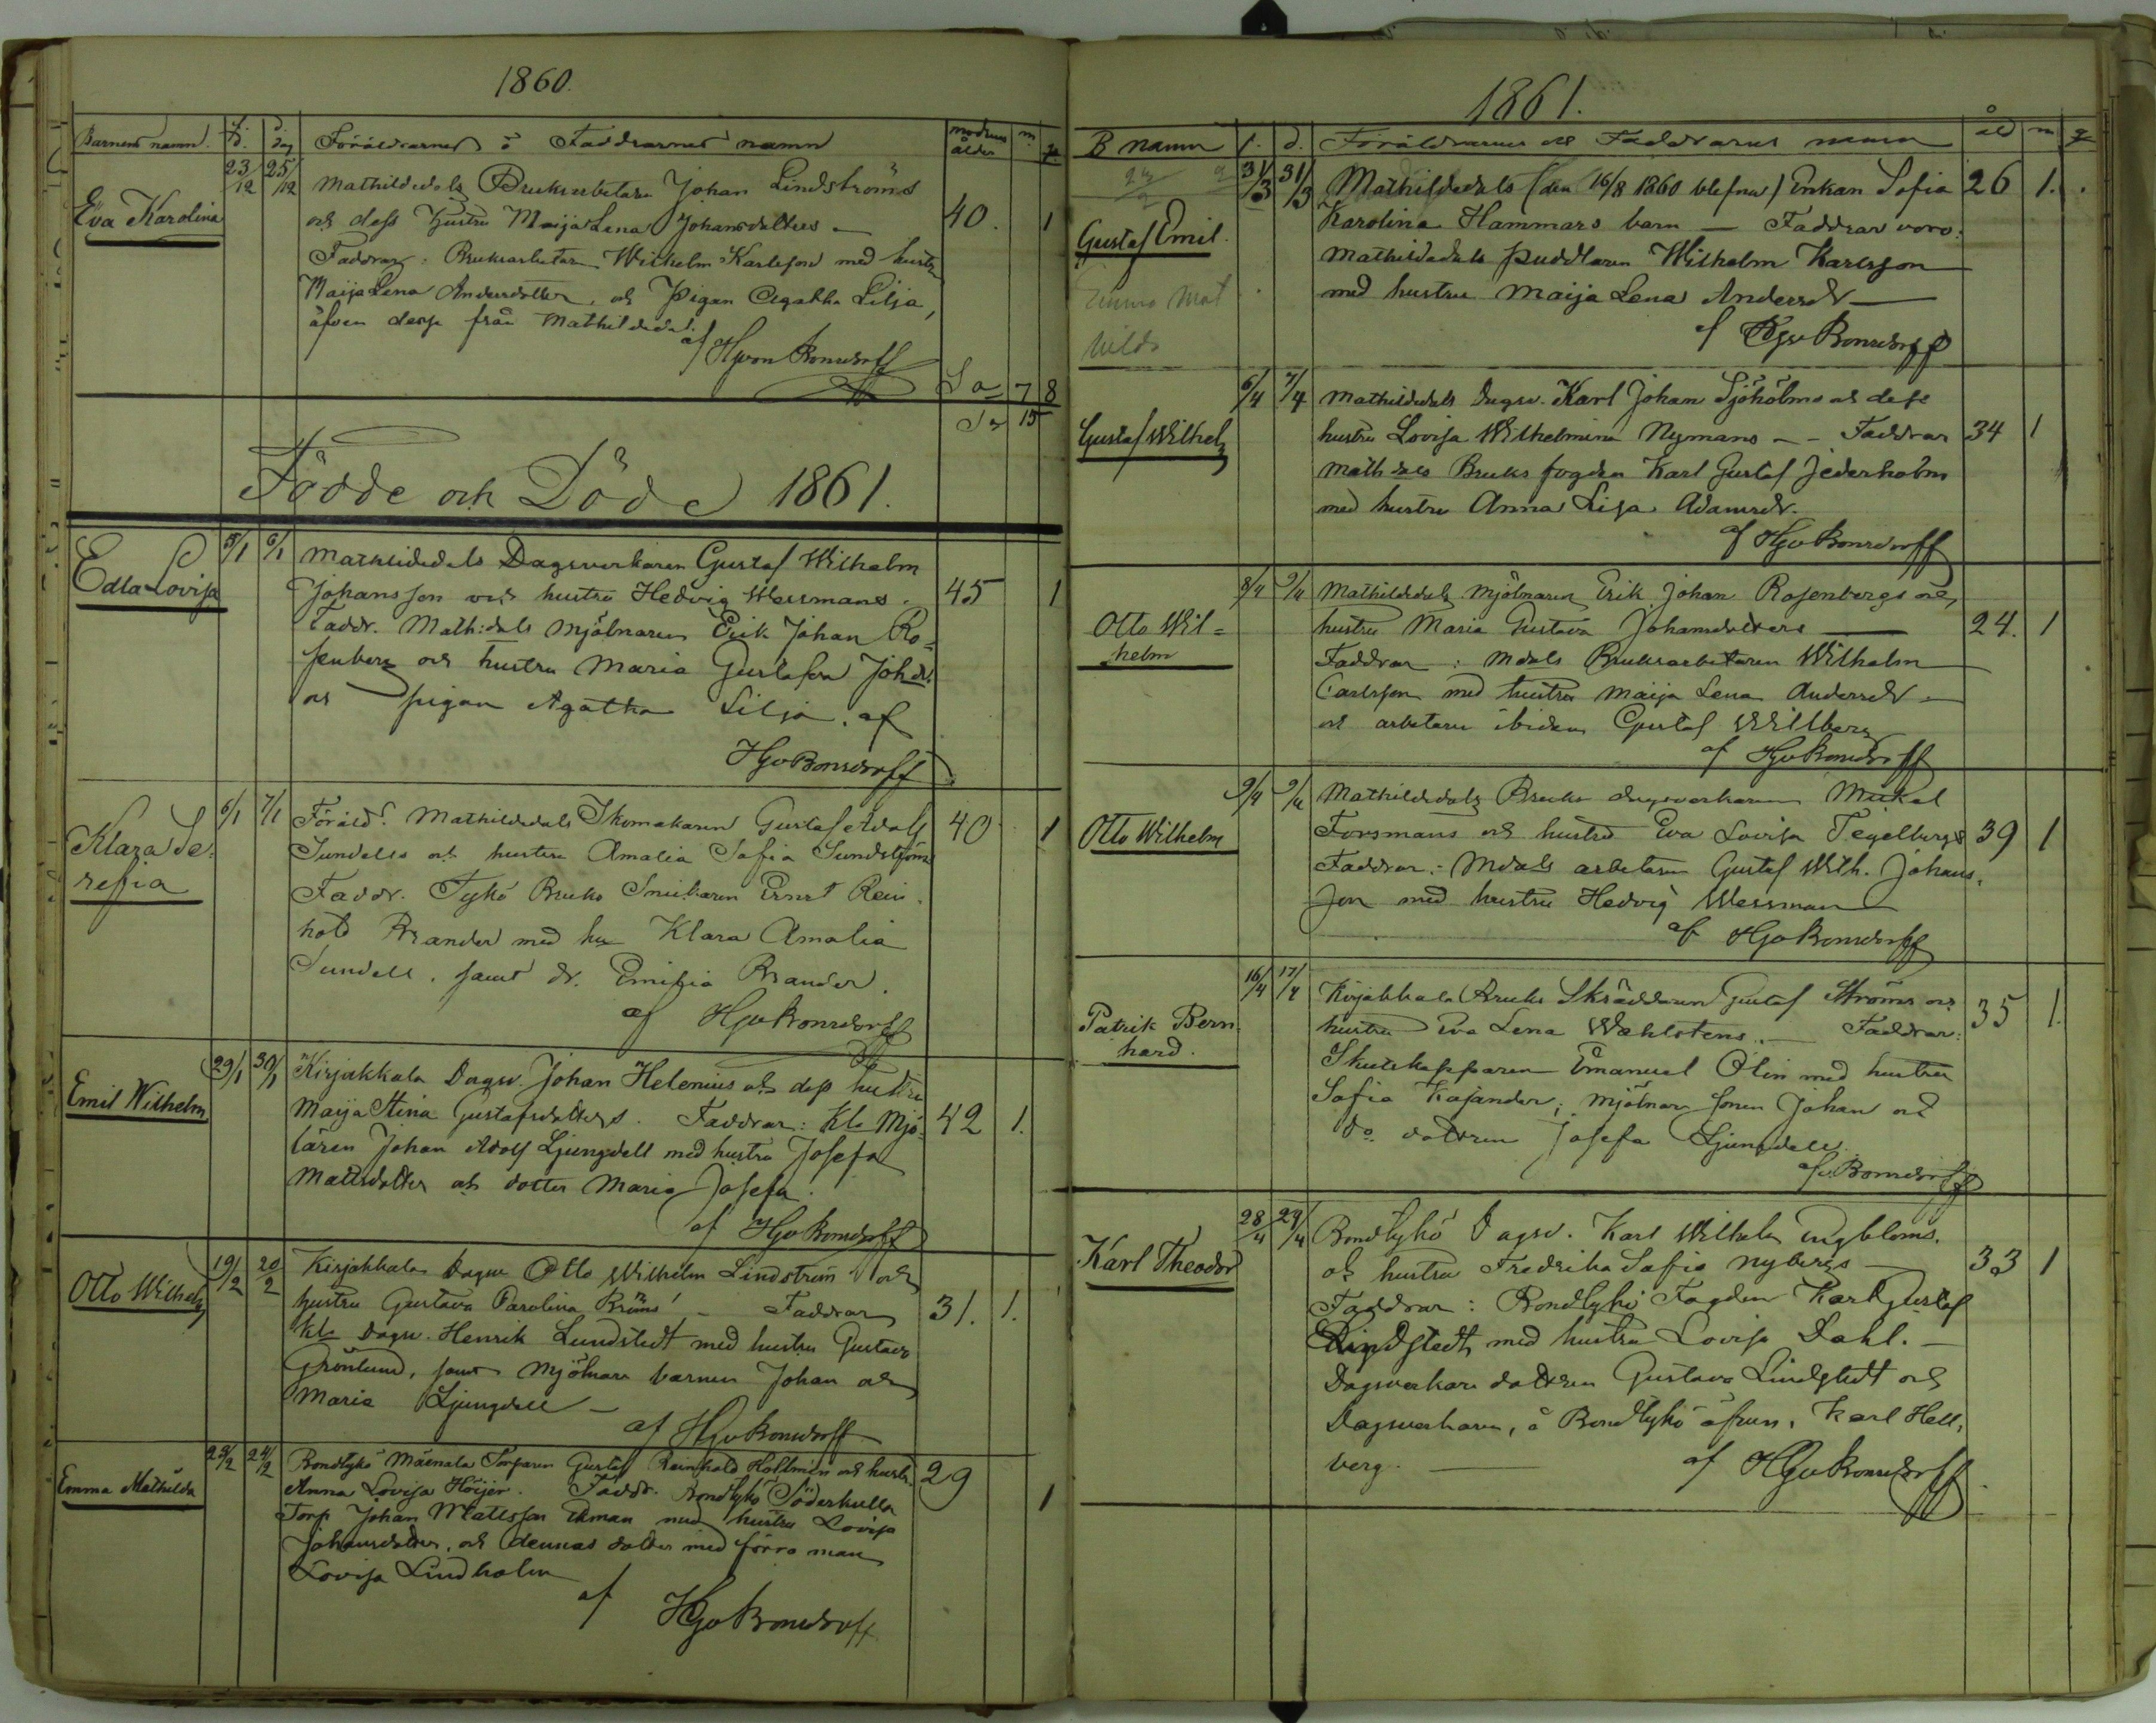 1860.
Barnens namn. f. dag Föräldrarnes o Faddrarnes namn modrens ålder m. q.
23/12 25/12 Mathildedals Bruksarbetare Johan Lindströms
Eva Karolina och dess hustru Maija Lena Johansdotters — 40. 1
Faddrar: Bruksarbetaren Wilhelm Karlsson med hustru
Maija Lena Andersdotter, och Pigan Agatha Lilja,
äfven desse från Mathildedal.
af HGvon Bonsdorff
Sa 7 8
Sa 15
Födde och Döde 1861.
5/1 6/1 Mathildedals Dagsverkaren Gustaf Wilhelm
Edla Lovisa Johansson och hustru Hedvig Wessmans. 45 1
Faddr. Math:dals Mjölnaren Erik Johan Ro-
senberg och hustru Maria Gustafva Johdr.
och pigan Agatha Lilja. af
HGvBonsdorff
6/1 7/1 Föräld. Mathildedals Skomakaren Gustaf Adolf 40 1
Klara Se- Sundells och hustru Amalia Sofia Sundström
refia Faddr. Tykö Bruks Smidaren Ernst Rein-
hold Brander med hu Klara Amalia
Sundell, samt dr. Emilia Brander.
af HGvBonsdorff
29/1 30/1 Kirjakkala Dagsv. Johan Helenius och dess hustru
Emil Wilhelm Maija Stina Gustafsdotters. Faddrar: Kla Mjö- 42 1.
lären Johan Adolf Ljungdell med hustru Josefa
Mattsdotter och dotter Maria Josefa.
af HGvBonsdorff
19/2 20/2 Kirjakkala Dagsv Otto Wilhelm Lindström och
Otto Wilhelm hustru Gustava Carolina Bröms — Faddrar 31. 1.
Kla Dagsv. Henrik Lundstedt med hustru Gustava
Grönlund, samt Mjölnare barnen Johan och
Maria Ljungdell —
af HGvBonsdorff
23/2 24/2 Bondtykö Mäenala Torparen Gustaf Reinhold Hollmén och hustr. 29
Emma Mathilda Anna Lovisa Höijer. Faddr. Bondtykö Söderkulla 1
Torp Johan Mattsson Ekman med hustru Lovisa
Johansdotter, och dennas dotter med förra man
Lovisa Lindholm
af HGvBonsdorff
1861.
B namn f. d. Föräldrarnes och Faddrarnes namn åld m q
31/3 31/3 Mathildedals (den 16/8 1860 blefne) Enkan Sofia 26 1.
Gustaf Emil. Karolina Hammars barn — Faddrar voro:
Mathildedals puddlaren Wilhelm Karlsson
Emma Mat med hustru Maija Lena Andersdr —
hilda
af HGvBonsdorff
6/4 7/4 Mathildedals Dagsv. Karl Johan Sjöholms och dess
Gustaf Wilhelm hustru Lovisa Wilhelmina Nymans — Faddrar 34 1
Math dals Bruks fogden Karl Gustaf Jederholm
med hustru Anna Lisa Adamsdr.
af HGvBonsdorff
8/4 9/4 Mathildedals Mjölnaren Erik Johan Rosenbergs och
Otto Wil= hustru Maria Gustava Johansdotters — 24. 1
helm Faddrar: Mdals Bruksarbetaren Wilhelm
Carlsson med hustru Maija Lena Andersdr —
och arbetaren ibidem Gustaf Willberg
af HGvBonsdorff
9/4 9/4 Mathildedals Bruks dagsverkaren Mickel
Otto Wilhelm Forsmans och hustru Eva Lovisa Tegelbergs 39 1
Faddrar: Mdals arbetaren Gustaf Wilh. Johans-
son med hustru Hedvig Wessman
af HGvBonsdorff
16/4 17/4 Kirjakkala Bruks Skräddaren Gustaf Ströms och
Patrik Bern- hustru Eva Lena Wahlstens. — Faddrar: 35 1.
hard. Skutskepparen Emanuel Ölin med hustru
Sofia Kajander; mjölnare sonen Johan och
do. dottren Josefa Ljungdell.
af vBonsdorff
28/4 29/4 Bondtykö Dagsv. Karl Wilhelm Engbloms.
Karl Theodor och hustru Fredrika Sofia Nybergs — 33 1
Faddrar: Bondtykö Fogden Karl Gustaf
Lindstedt, med hustru Lovisa Dahl. —
Dagsverkare dottren Gustava Lindstedt och
Dagsverkaren, å Bondtykö äfven, Karl Hell-
berg. — af HGvBonsdorff